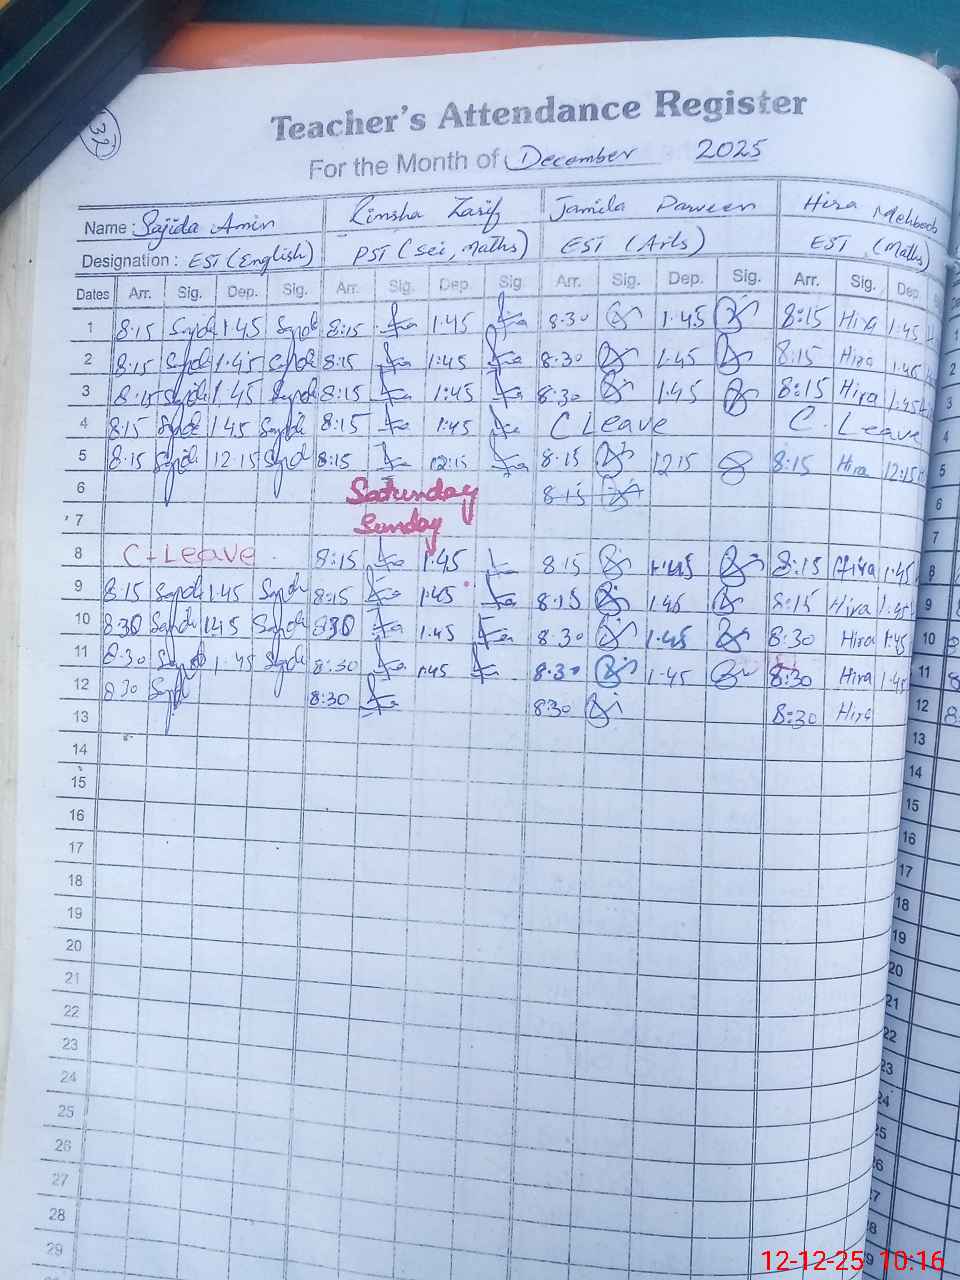 37
Teacher's Attendance Register
For the Month of December 2025
Name: Sajida Amin Rimsha Zarif Jamila Parveen Hira Mehboob
Designation: EST (English) PST (Sci, Maths) EST (Arts) EST (Maths)
Dates Arr. Sig. Dep. Sig. Arr. Sig. Dep. Sig. Arr. Sig. Dep. Sig. Arr. Sig. Dep.
1 8:15 1:45 8:15 1:45 8:30 1:45 8:15 Hira 1:45
2 8:15 1:45 8:15 1:45 8:30 1:45 8:15 Hira 1:45 2
3 8:15 1:45 8:15 1:45 8:30 1:45 8:15 Hira 1:45 3
4 8:15 1:45 8:15 1:45 C Leave C. Leave 4
5 8:15 12:15 8:15 12:15 8:15 12:15 8:15 Hira 12:15 5
6 Saturday 8:15 6
7 Sunday 7
8 C-Leave 8:15 1:45 8:15 1:45 8:15 Hira 1:45 8
9 8:15 1:45 8:15 1:45 8:15 1:45 8:15 Hira 1:45 9
10 8:30 1:45 8:30 1:45 8:30 1:45 8:30 Hira 1:45 10
11 8:30 1:45 8:30 1:45 8:30 1:45 8:30 Hira 1:45 11
12 8:30 8:30 8:30 8:30 Hira 12
13 13
14 14
15 15
16 16
17 17
18 18
19 19
20 20
21 21
22 22
23 23
24 24
25
26
27
28
29
12-12-25 10:16